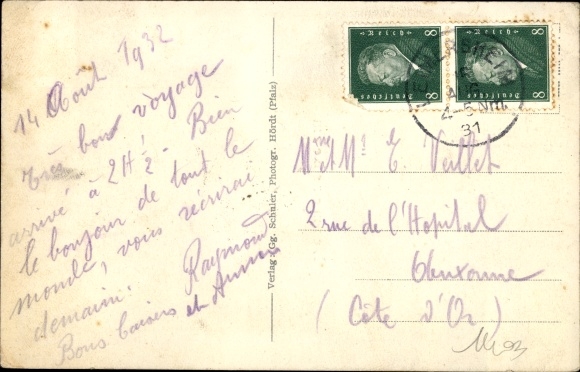 14 Août 1932
Très bon voyage
arrivé à 2H ½. Bien
le bonjour de tout le
monde, vous récrirai
demain.
Bons baisers Raymond
et
Verlag: Gg. Schuler, Photogr. Hördt (Pfalz)
8 Reich 8
Deutsches
8 Reich 8
Deutsches
4-5 Nm.
31
Mme et Mr E. Veillet
2 rue de l'Hopital
Auxonne
(Côte d'Or)